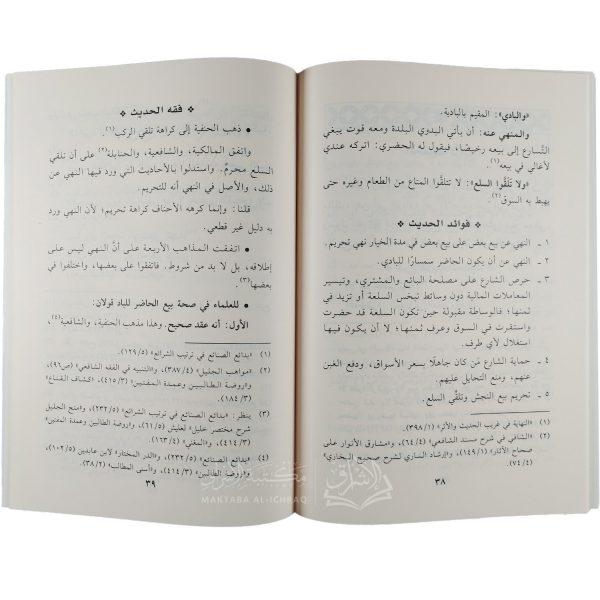 «والبادي»: المقيم بالبادية.
والمنهي عنه: أن يأتي البدوي البلدة ومعه قوت يبغي
التسارع إلى بيعه رخيصًا، فيقول له الحضري: اتركه عندي
لأغالي في بيعه(١).
«ولا تَلَقَّوا السلع»: لا تتلقَّوا المتاع من الطعام وغيره حتى
يهبط به السوق(٢).
❖ فوائد الحديث ❖
١ ـ النهي عن بيع بعض على بيع بعض في مدة الخيار نهي تحريم.
٢ ـ النهي عن أن يكون الحاضر سمسارًا للبادي.
٣ ـ حرص الشارع على مصلحة البائع والمشتري، وتيسير
المعاملات المالية دون وسائط تبخس السلعة أو تزيد في
ثمنها؛ فالوساطة مقبولة حين تكون السلعة قد حضرت
واستقرت في السوق وعرف ثمنها؛ لا أن يكون فيها
استغلال لأي طرف.
٤ ـ حماية الشارع مَن كان جاهلًا بسعر الأسواق، ودفع الغبن
عنهم، ومنع التحايل عليهم.
٥ ـ تحريم بيع النجش وتلقّي السلع.
(١) «النهاية في غريب الحديث والأثر» (٣٩٨/٢).
(٢) «الشافي في شرح مسند الشافعي» (٦٤/٤)، و«مشارق الأنوار على
صحاح الآثار» (١٤٩/١)، و«إرشاد الساري لشرح صحيح البخاري»
(٧٤/٤).
٣٨
❖ فقه الحديث ❖
• ذهب الحنفية إلى كراهة تلقي الركب(١).
واتفق المالكية، والشافعية، والحنابلة(٢) على أن تلقي
السلع محرمٌ. واستدلوا بالأحاديث التي ورد فيها النهي عن
ذلك، والأصل في النهي أنه للتحريم.
قلنا: وإنما كرهه الأحناف كراهة تحريم؛ لأن النهي ورد
به دليل غير قطعي.
• اتفقت المذاهب الأربعة على أنَّ النهي ليس على
إطلاقه، بل لا بد من شروط. فاتفقوا على بعضها، واختلفوا في
بعضها(٣).
• للعلماء في صحة بيع الحاضر للباد قولان:
الأول: أنه عقد صحيح. وهذا مذهب الحنفية، والشافعية(٤)،
(١) «بدائع الصنائع في ترتيب الشرائع» (١٢٩/٥).
(٢) «مواهب الجليل» (٣٨٧/٤)، و«التنبيه في الفقه الشافعي» (ص٩٦)،
و«روضة الطالبين وعمدة المفتين» (٤١٥/٣)، «كشاف القناع»
(١٨٤/٣).
(٣) ينظر: «بدائع الصنائع في ترتيب الشرائع» (٢٣٢/٥)، و«منح الجليل
شرح مختصر خليل» لعليش (٦١/٥)، و«روضة الطالبين وعمدة المفتين»
(٤١٤/٣)، و«المغني» (١٦٣/٤).
(٤) «بدائع الصنائع» (٢٣٢/٥)، و«الدر المختار» لابن عابدين (١٠٢/٥)،
و«روضة الطالبين» (٤١٤/٣)، و«أسنى المطالب» (٣٨/٢).
٣٩
مكتبة الإشراق
MAKTABA AL-ICHRAQ
الإشراق